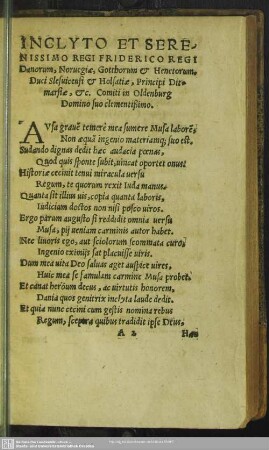 INCLYTO ET SERE-
NISSIMO REGI FRIDERICO REGI
Danorum, Noruegiæ, Gotthorum & Henetorum,
Duci Slesuicensi & Holsatiæ, Principi Dit-
marsiæ, &c. Comiti in Oldenburg
Domino suo clementissimo.
AVsa grauē temerè mea sumere Musa laborē,
Non æquā ingenio materiamq; suo est.
Sudando dignas dedit hæc audacia pœnas,
Quod quis sponte subit, uincat oportet onus.
Historiæ cecinit tenui miracula uersu
Regum, te quorum rexit Iuda manus.
Quanta sit illius uis, copia quanta laboris,
Iudicium doctos non nisi posco uiros.
Ergo parum augusto si reddidit omnia uersu
Musa, pij ueniam carminis autor habet.
Nec liuoris ego, aut sciolorum scommata curo,
Ingenio eximijs sat placuisse uiris.
Dum mea uita Deo saluas aget auspice uires,
Huic mea se famulam carmine Musa probet.
Et canat heröum decus, ac uirtutis honorem,
Dania quos genitrix inclyta laude dedit.
Et quia nunc cecini cum gestis nomina rebus
Regum, sceptra quibus tradidit ipse Deus,
A 2